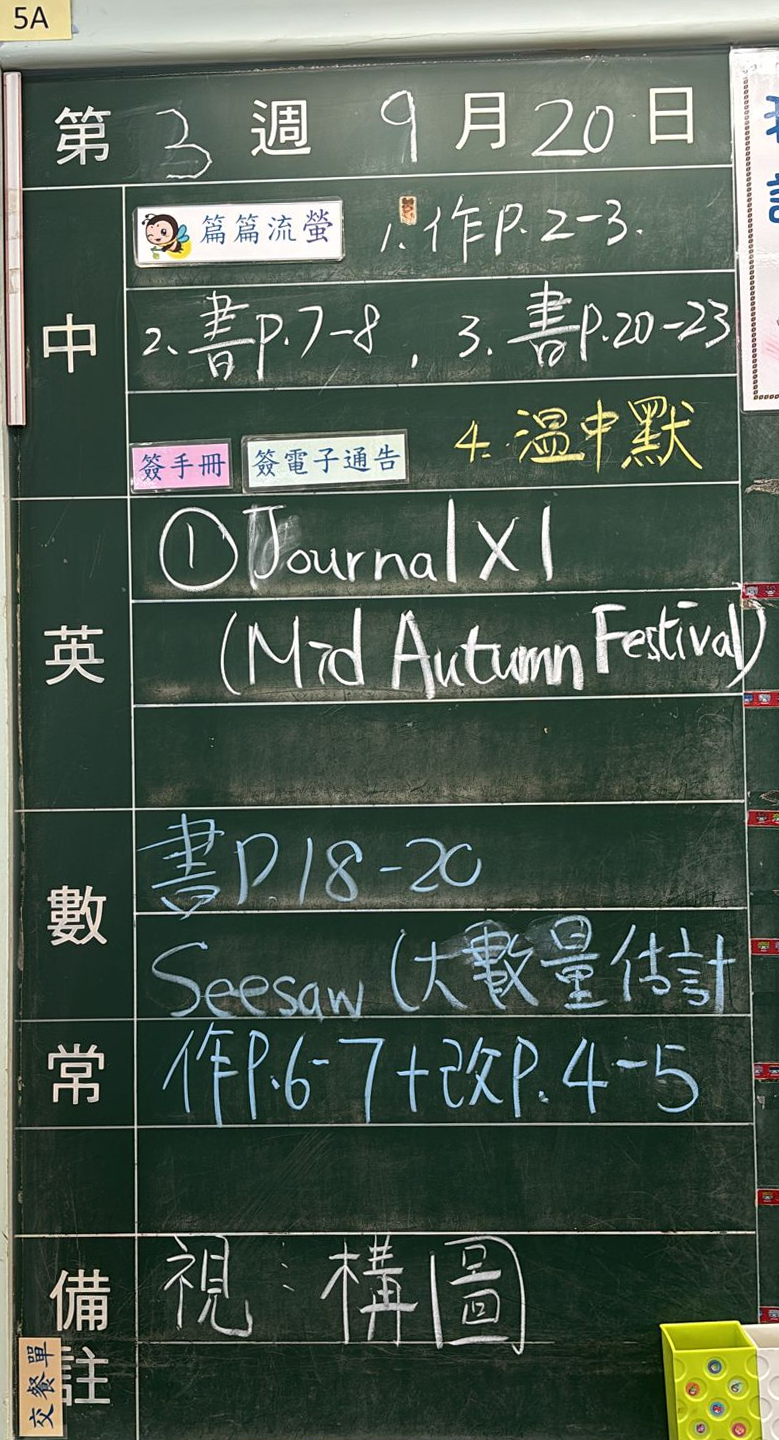 5A
第 3 週 9 月 20 日
中
篇篇流螢 1. 作P.2-3.
2. 書P.7-8 , 3. 書P.20-23
簽手冊 簽電子通告 4. 溫中默
英
① Journal X 1
(Mid Autumn Festival)
數
書P.18-20
Seesaw (大數量估計
常
作P.6-7+改P.4-5
備註
視:構圖
交餐單